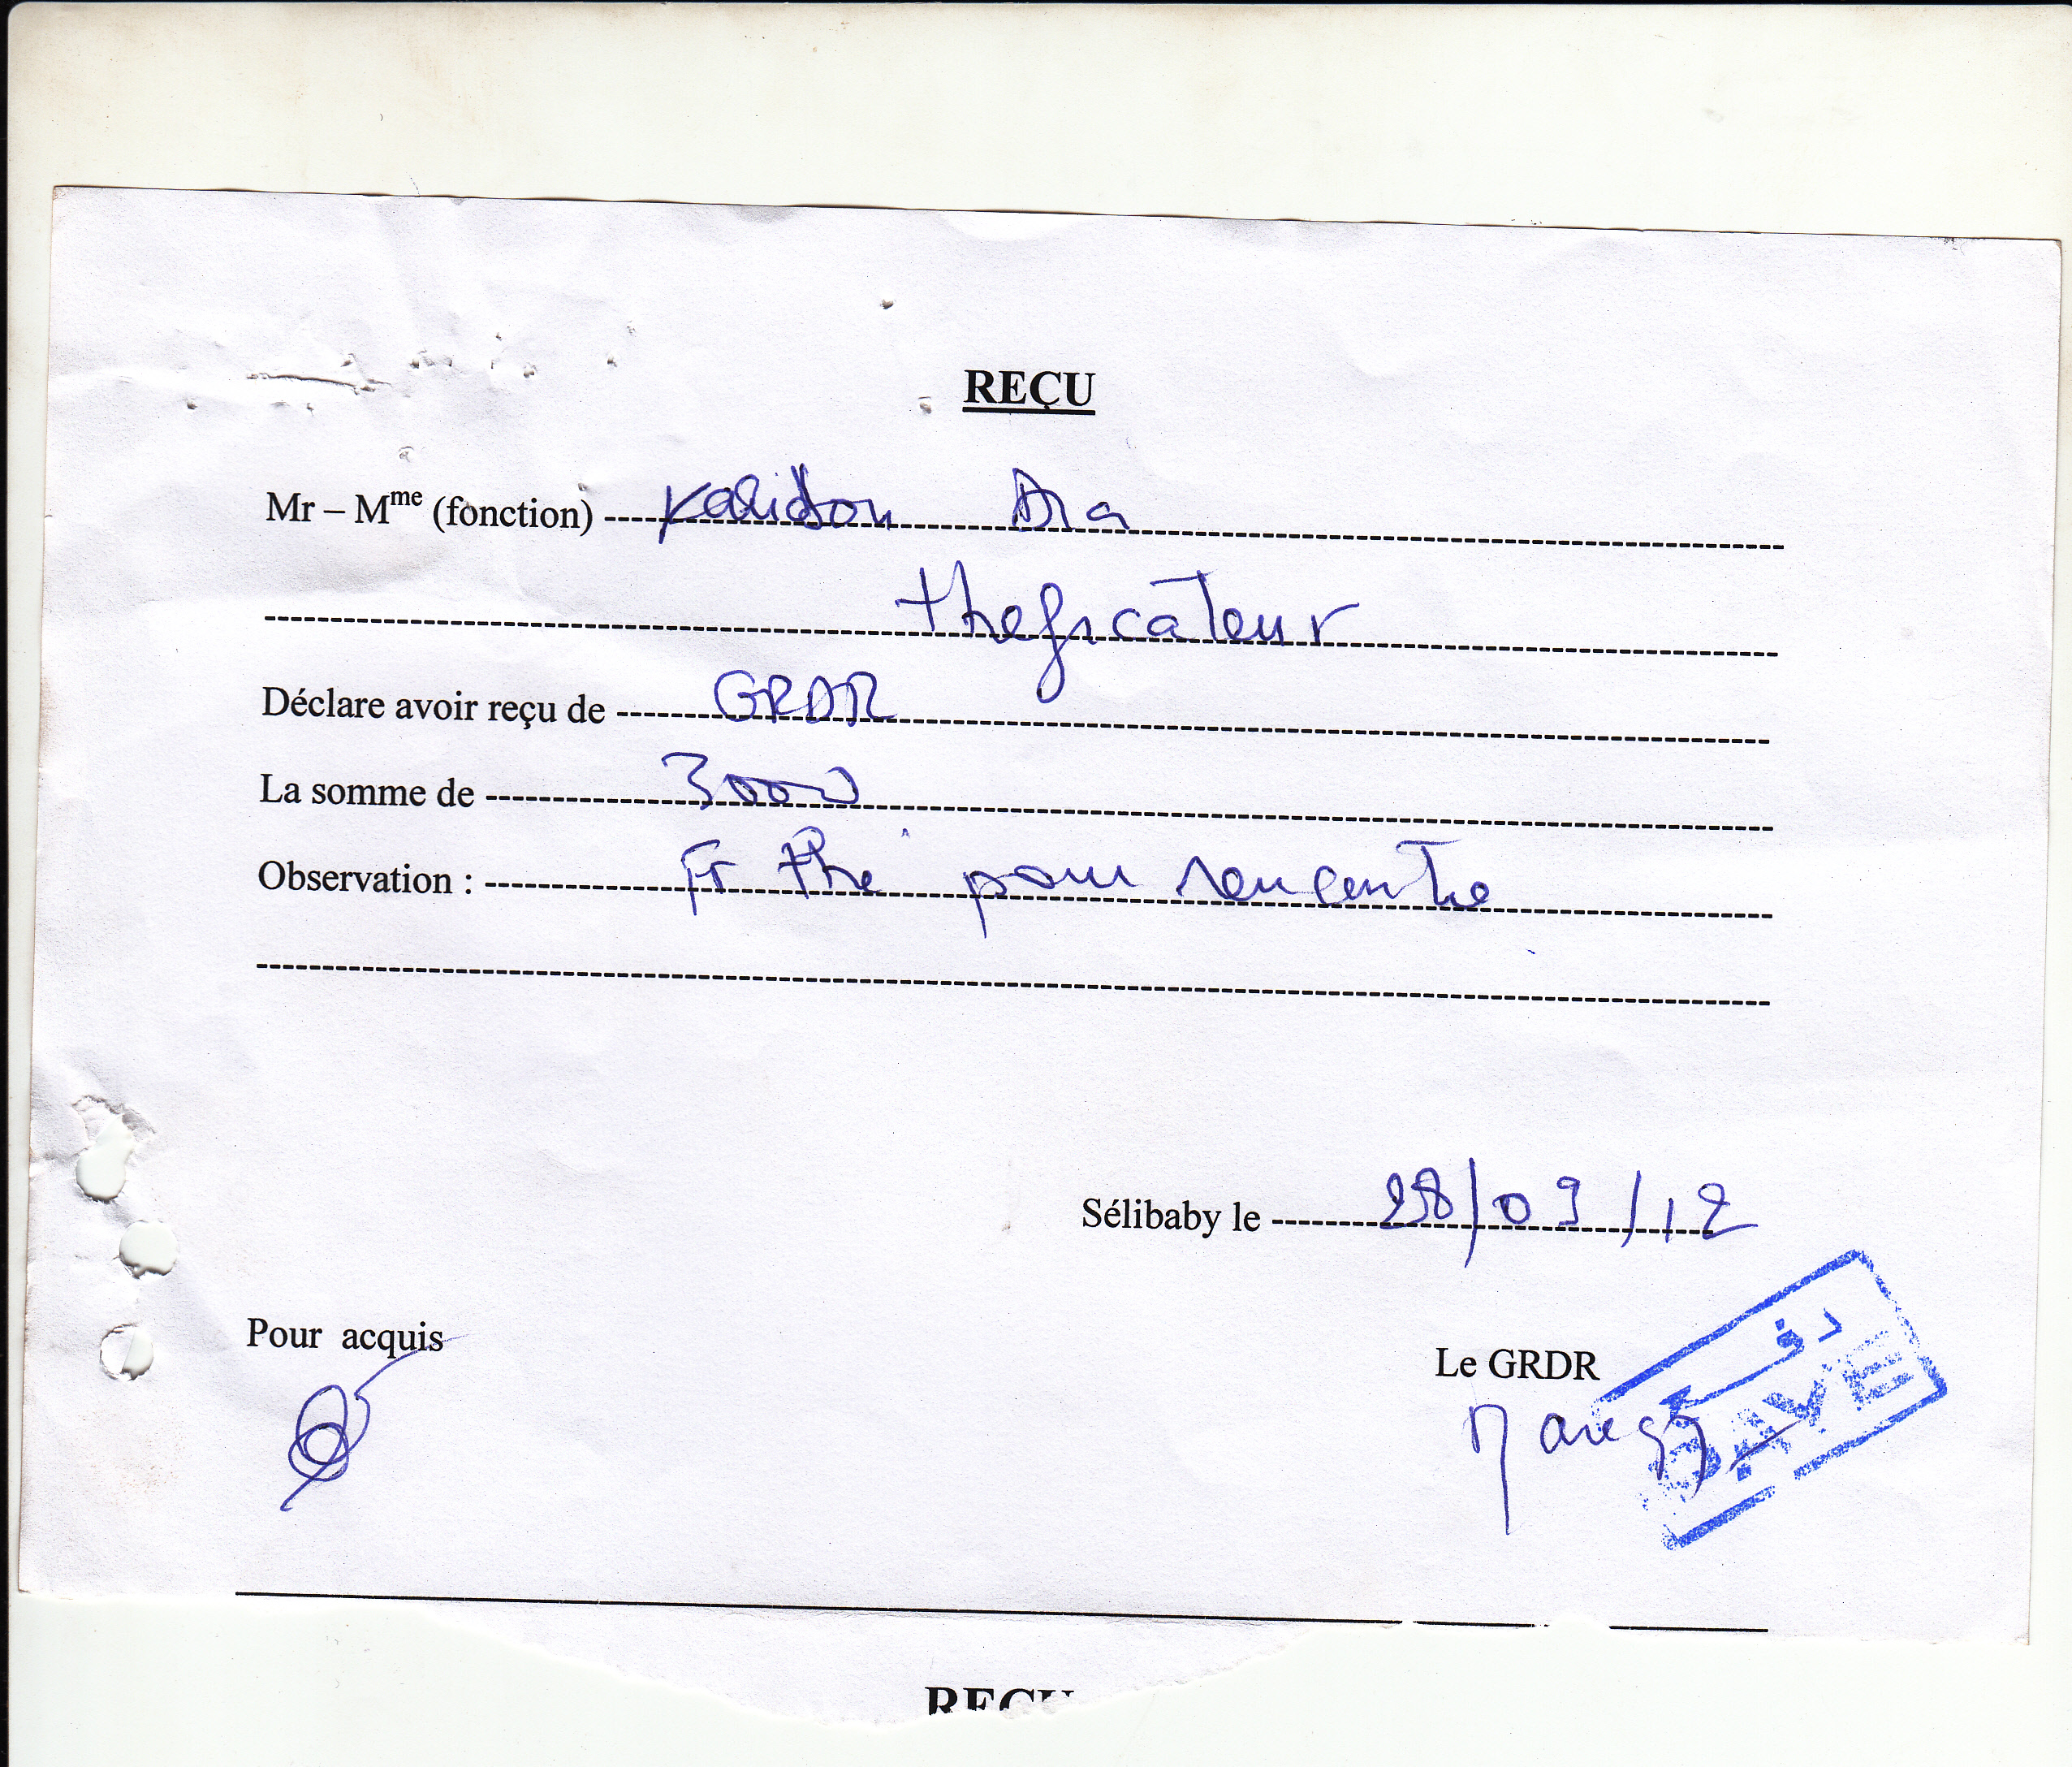 REÇU
Mr – Mme (fonction) Kalidou Dia
theficateur
Déclare avoir reçu de GRDR
La somme de 3000
Observation : Fr thé pour rencontre
Sélibaby le 28/09/12
Pour acquis
Le GRDR
دفع
PAYE
REÇU